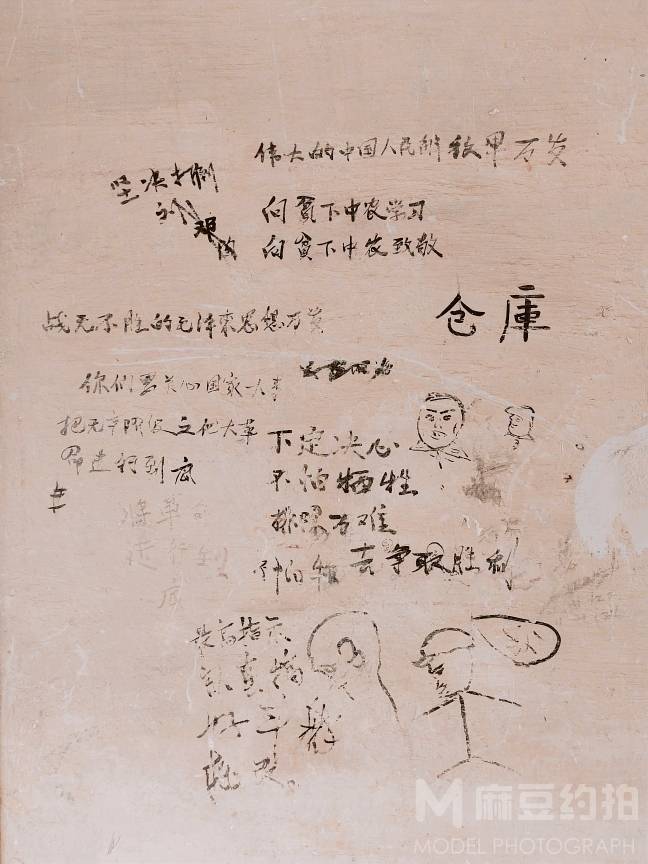 伟大的中国人民解放军万岁
坚决打倒
刘邓
向贫下中农学习
向贫下中农致敬
仓庫
战无不胜的毛泽东思想万岁
你们要关心国家大事
把无产阶级文化大革
命进行到底
下定决心
不怕牺牲
排除万难
去争取胜利
将革命
进行到
底
最高指示
认真搞
好斗
批改。
麻豆约拍
MODEL PHOTOGRAPH